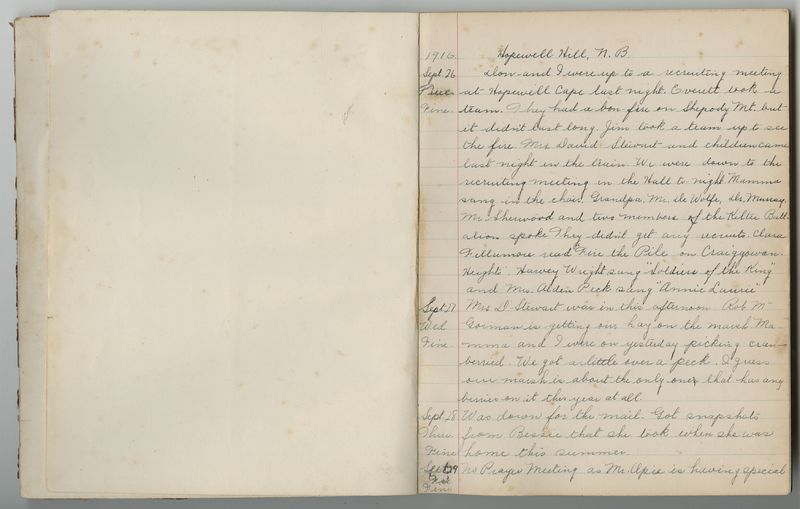 1916 Hopewell Hill, N. B
Sept. 26 Don and I were up to a recruiting meeting
Tues. at Hopewell Cape last night. Everett took a
Fine. team. They had a bon fire on Shepody Mt. but
it didn't last long. Jim took a team up to see
the fire. Mrs David Stewart and children came
last night on the train. We were down to the
recruiting meeting in the Hall to-night. Mamma
sang in the choir. Grandpa, Mr. de Wolfe, Dr. Murray,
Mr Sherwood and two members of the Kiltie Batt-
alion spoke. They didn't get any recruits. Clara
read "Fire the Pile on Craiggowan.
Heights". Harvey Wright sang "Soldiers of the King"
and Mrs. Alden Peck sang "Annie Laurie"
Sept 27 Mrs D. Stewart was in this afternoon. Rob Mc
Wed Gorman is getting our hay on the marsh. Ma-
Fine. mma and I were on yesterday picking cran-
berried. We got a little over a peck. I guess
our marsh is about the only ones that has any
berries on it this year at all.
Sept 28 Was down for the mail. Got snapshots
Thur from Bessie that she took when she was
Fine home this summer.
Sept 29 No Prayer Meeting as Mr. Opie is having special
Fine